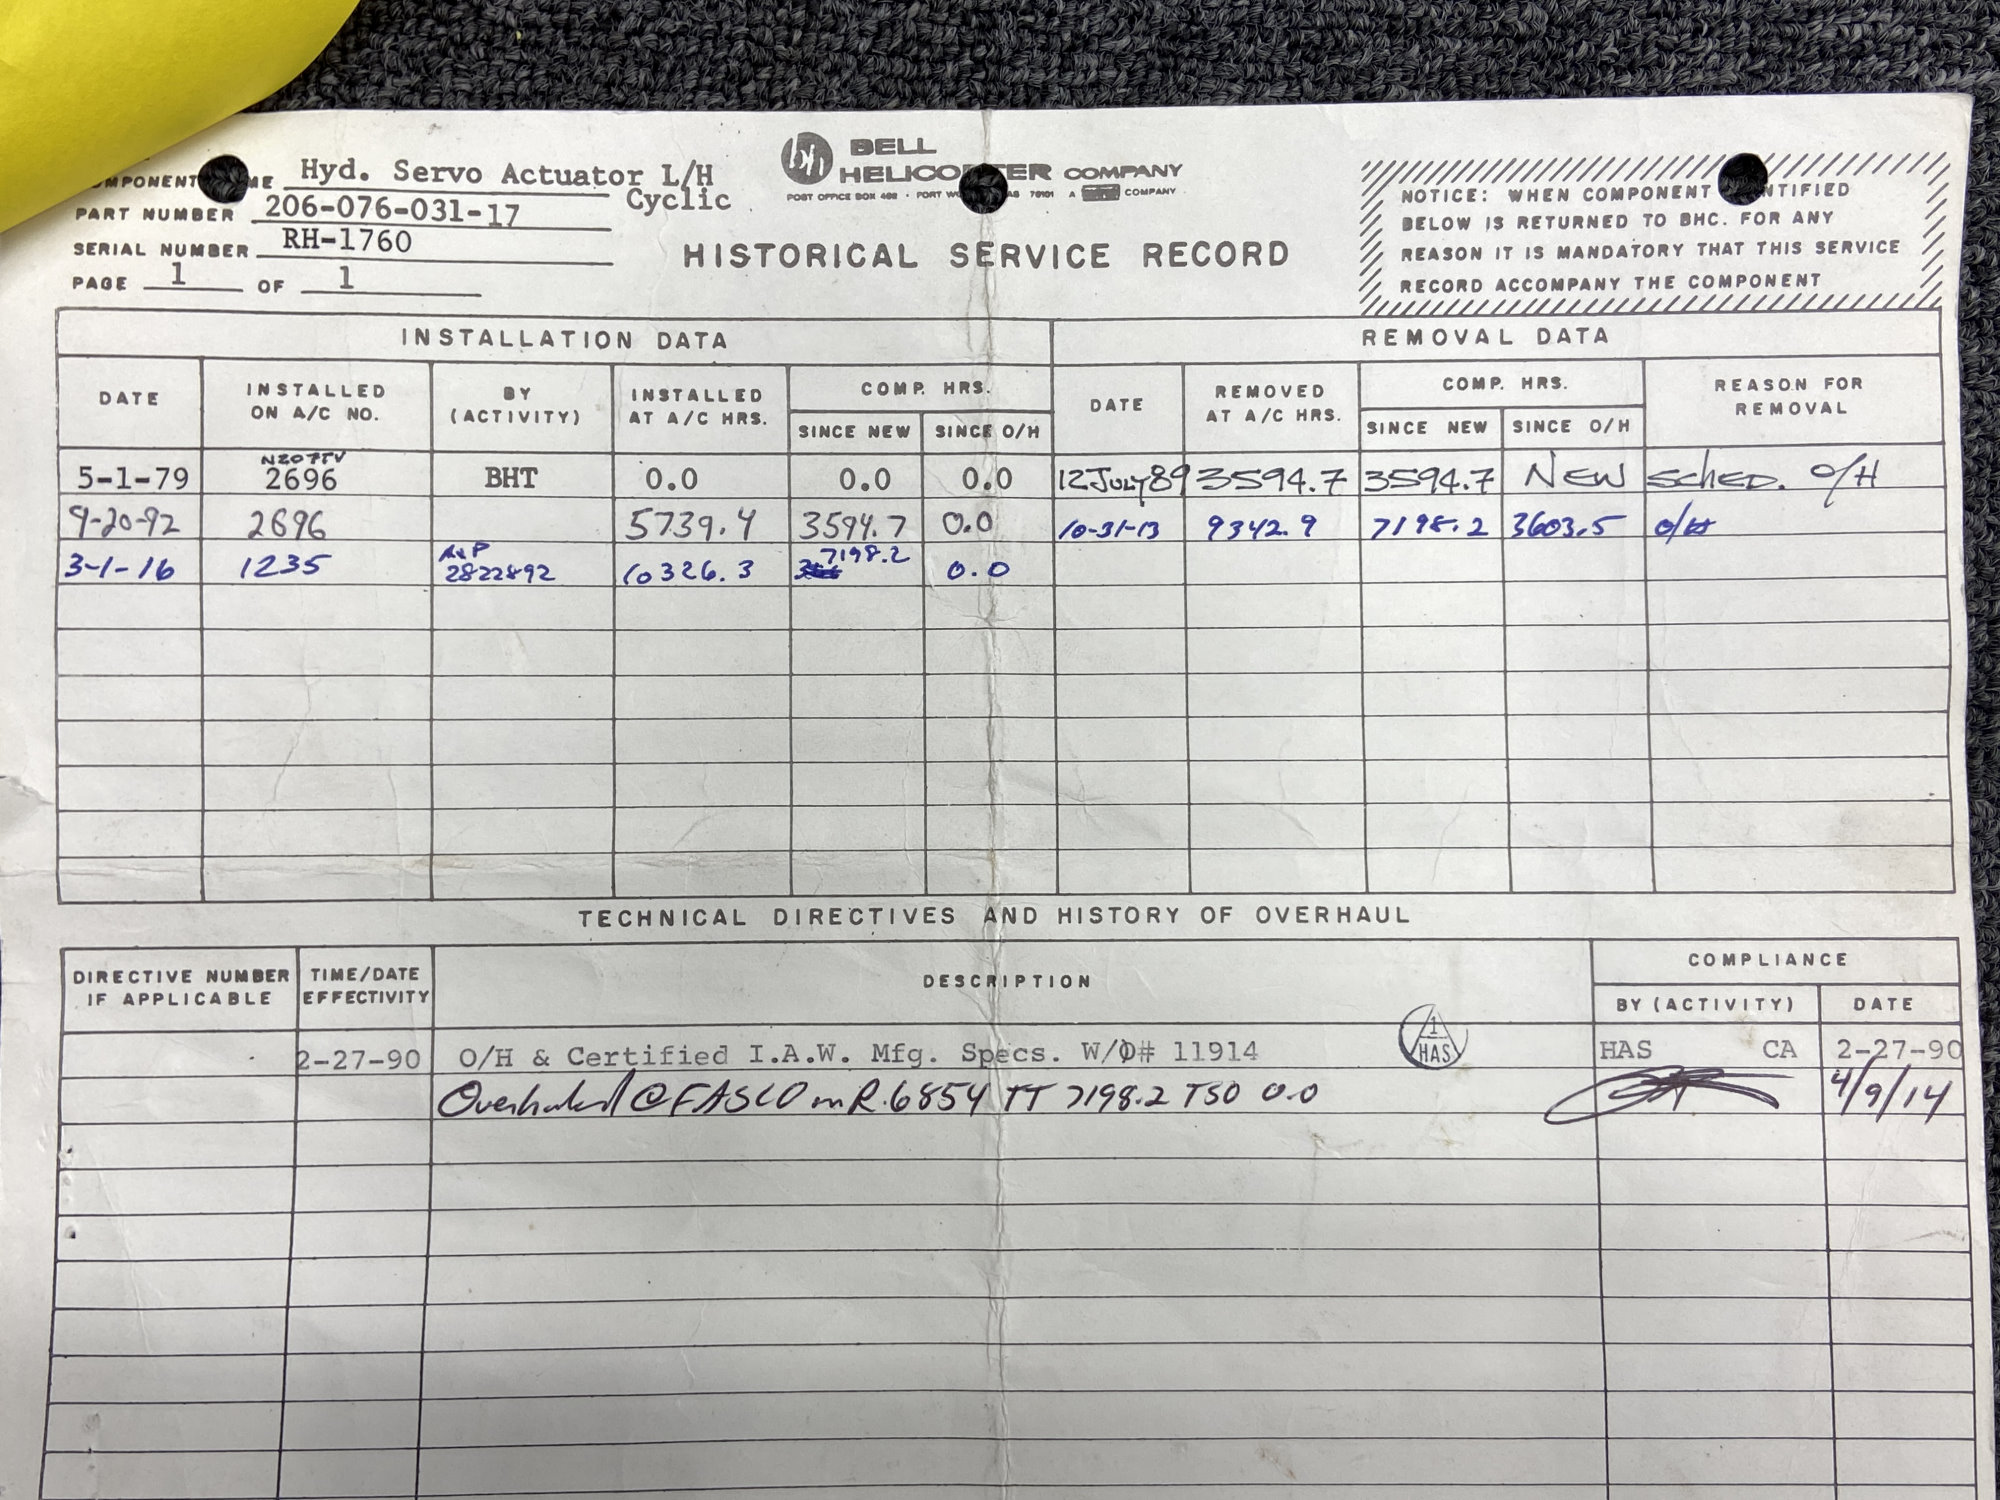 Hyd. Servo Actuator L/H
Cyclic
PART NUMBER 206-076-031-17
SERIAL NUMBER RH-1760
PAGE 1 OF 1
BELL
COMPANY
POST OFFICE BOX 482 · FORT 76101 A COMPANY
HISTORICAL SERVICE RECORD
NOTICE: WHEN COMPONENT
BELOW IS RETURNED TO BHC. FOR ANY
REASON IT IS MANDATORY THAT THIS SERVICE
RECORD ACCOMPANY THE COMPONENT
INSTALLATION DATA REMOVAL DATA
DATE INSTALLED ON A/C NO. BY (ACTIVITY) INSTALLED AT A/C HRS. COMP. HRS. SINCE NEW SINCE O/H DATE REMOVED AT A/C HRS. COMP. HRS. SINCE NEW SINCE O/H REASON FOR REMOVAL
5-1-79 2696 BHT 0.0 0.0 0.0 12 JULY 89 3594.7 3594.7 NEW SCHED. O/H
9-20-92 2696 5739.4 3594.7 0.0 10-31-13 9342.9 7198.2 3603.5 O/H
3-1-16 1235 A&P 2822892 10326.3 7198.2 0.0
TECHNICAL DIRECTIVES AND HISTORY OF OVERHAUL
DIRECTIVE NUMBER IF APPLICABLE TIME/DATE EFFECTIVITY DESCRIPTION COMPLIANCE BY (ACTIVITY) DATE
1
HAS
2-27-90 O/H & Certified I.A.W. Mfg. Specs. W/O# 11914 HAS CA 2-27-90
Overhauled @ FASCO R.6854 TT 7198.2 TSO 0.0 4/9/14